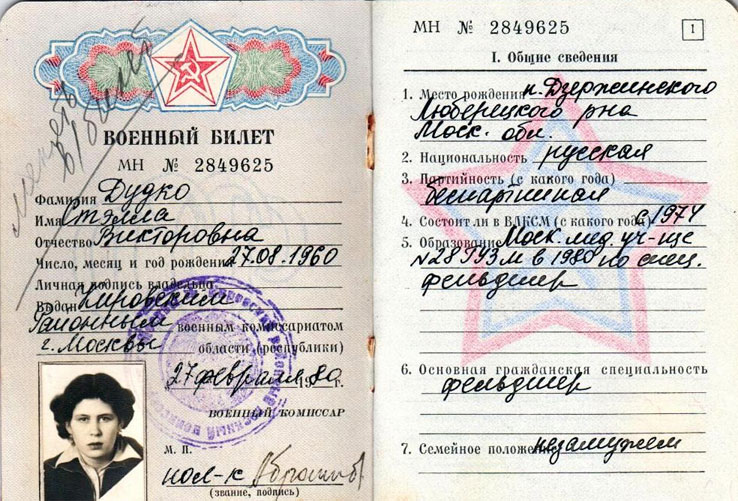 ВОЕННЫЙ БИЛЕТ
МН № 2849625
Фамилия Дудко
Имя Стэлла
Отчество Викторовна
Число, месяц и год рождения 27.08.1960
Личная подпись владельца
Выдан Кировским
Районным военным комиссариатом
г. Москвы области (республики)
27 февраля 1980 г.
ВОЕННЫЙ КОМИССАР
М. П.
(звание, подпись)
МН № 2849625
1
I. Общие сведения
1. Место рождения п. Дзержинского
Люберецкого р-на
Моск. обл.
2. Национальность русская
3. Партийность (с какого года)
беспартийная
4. Состоит ли в ВЛКСМ (с какого года) с 1974
5. Образование Моск. мед. уч-ще
№28 ГУЗМ в 1980 по спец.
фельдшер
6. Основная гражданская специальность
фельдшер
7. Семейное положение незамужем